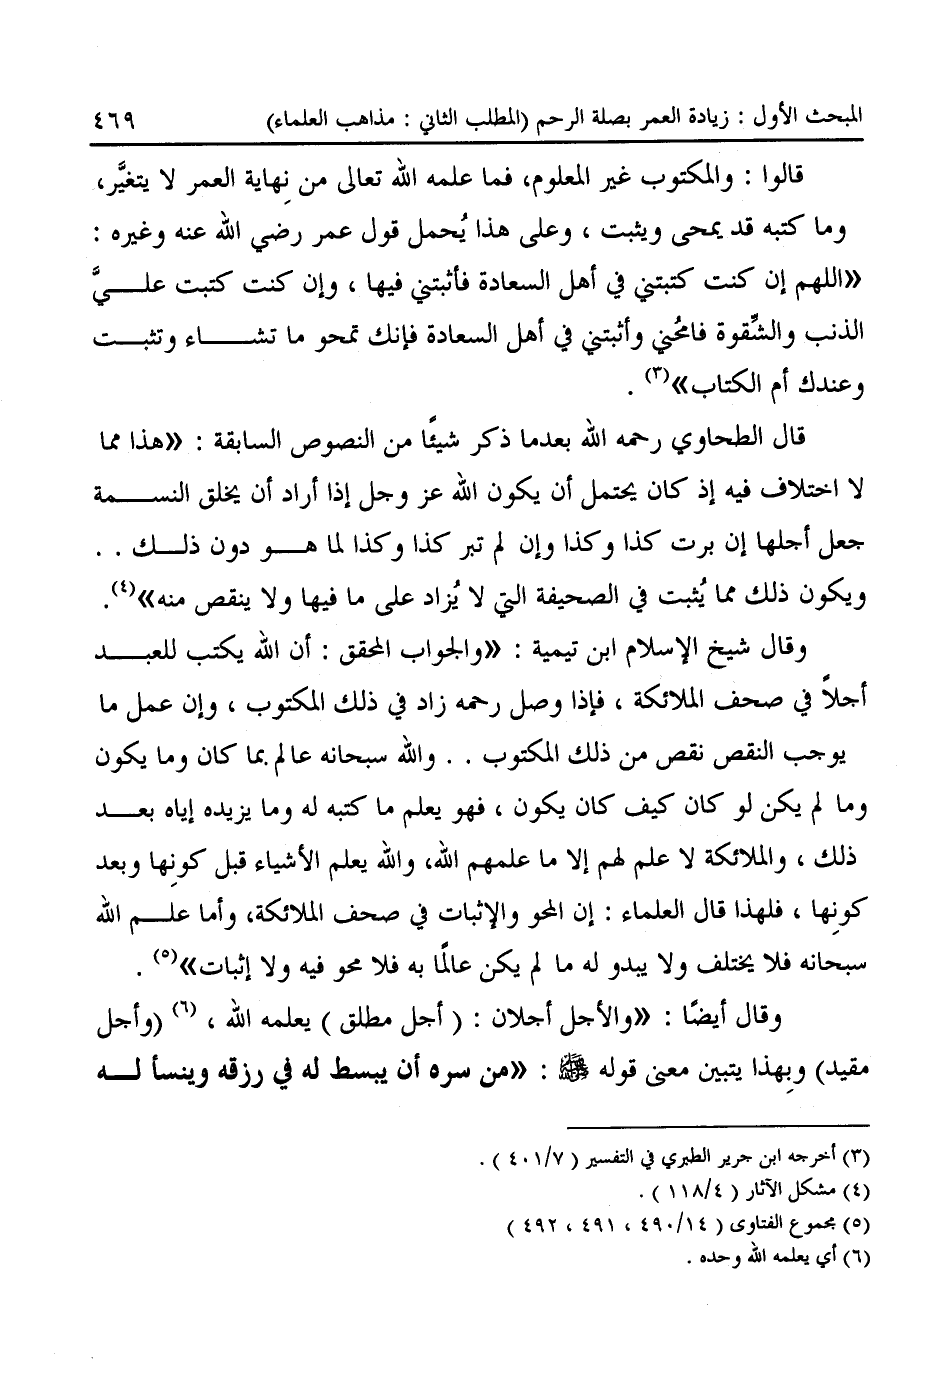 المبحث الأول : زيادة العمر بصلة الرحم (المطلب الثاني : مذاهب العلماء) ٤٦٩
قالوا : والمكتوب غير المعلوم، فما علمه الله تعالى من نهاية العمر لا يتغيَّر،
وما كتبه قد يمحى ويثبت ، وعلى هذا يُحمل قول عمر رضي الله عنه وغيره :
«اللهم إن كنت كتبتني في أهل السعادة فأثبتني فيها ، وإن كنت كتبت علـــيَّ
الذنب والشِّقوة فامحُني وأثبتني في أهل السعادة فإنك تمحو ما تشـــاء وتثبـــت
وعندك أم الكتاب»(٣) .
قال الطحاوي رحمه الله بعدما ذكر شيئًا من النصوص السابقة : «هذا مما
لا اختلاف فيه إذ كان يحتمل أن يكون الله عز وجل إذا أراد أن يخلق النســـمة
جعل أجلها إن برت كذا وكذا وإن لم تبر كذا وكذا لما هـــو دون ذلـــك . .
ويكون ذلك مما يُثبت في الصحيفة التي لا يُزاد على ما فيها ولا ينقص منه»(٤).
وقال شيخ الإسلام ابن تيمية : «والجواب المحقق : أن الله يكتب للعبـــد
أجلاً في صحف الملائكة ، فإذا وصل رحمه زاد في ذلك المكتوب ، وإن عمل ما
يوجب النقص نقص من ذلك المكتوب . . والله سبحانه عالم بما كان وما يكون
وما لم يكن لو كان كيف كان يكون ، فهو يعلم ما كتبه له وما يزيده إياه بعـــد
ذلك ، والملائكة لا علم لهم إلا ما علمهم الله، والله يعلم الأشياء قبل كونها وبعد
كونها ، فلهذا قال العلماء : إن المحو والإثبات في صحف الملائكة، وأما علـــم الله
سبحانه فلا يختلف ولا يبدو له ما لم يكن عالمًا به فلا محو فيه ولا إثبات»(٥) .
وقال أيضًا : «والأجل أجلان : ( أجل مطلق ) يعلمه الله ، (٦) (وأجل
مقيد) وبهذا يتبين معنى قوله ﷺ : «من سره أن يبسط له في رزقه وينسأ لـــه
(٣) أخرجه ابن جرير الطبري في التفسير ( ٤٠١/٧ ) .
(٤) مشكل الآثار ( ١١٨/٤ ) .
(٥) مجموع الفتاوى ( ٤٩٠/١٤ ، ٤٩١ ، ٤٩٢ )
(٦) أي يعلمه الله وحده .